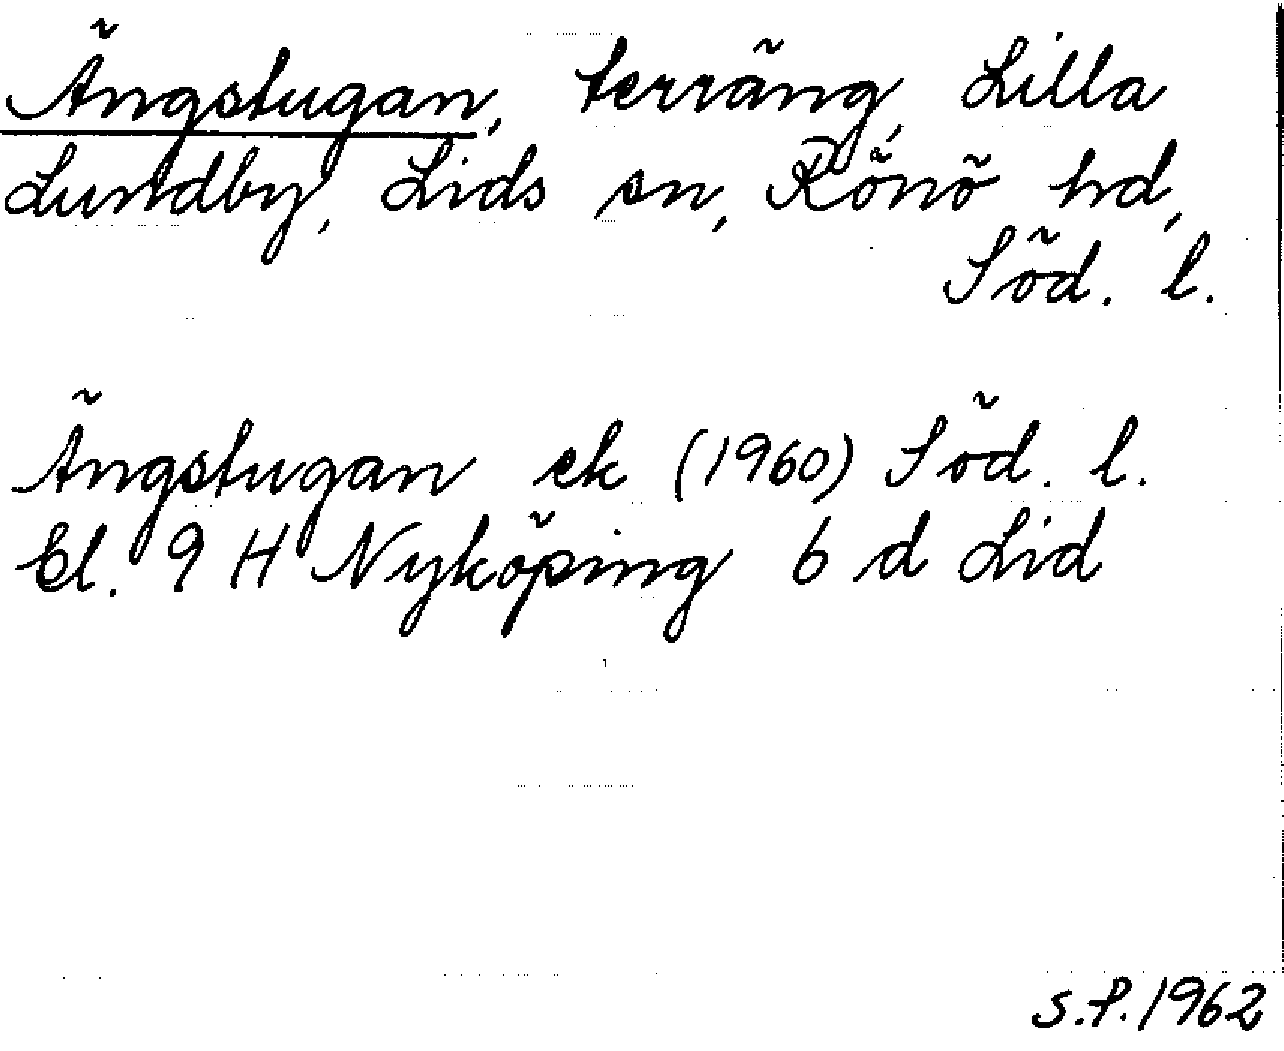 Ängstugan, terräng, Lilla
Lundby, Lids sn, Rönö hd,
Söd. l.
Ängstugan ek (1960) Söd. l.
Bl. 9 H Nyköping 6 d Lid
S.P. 1962